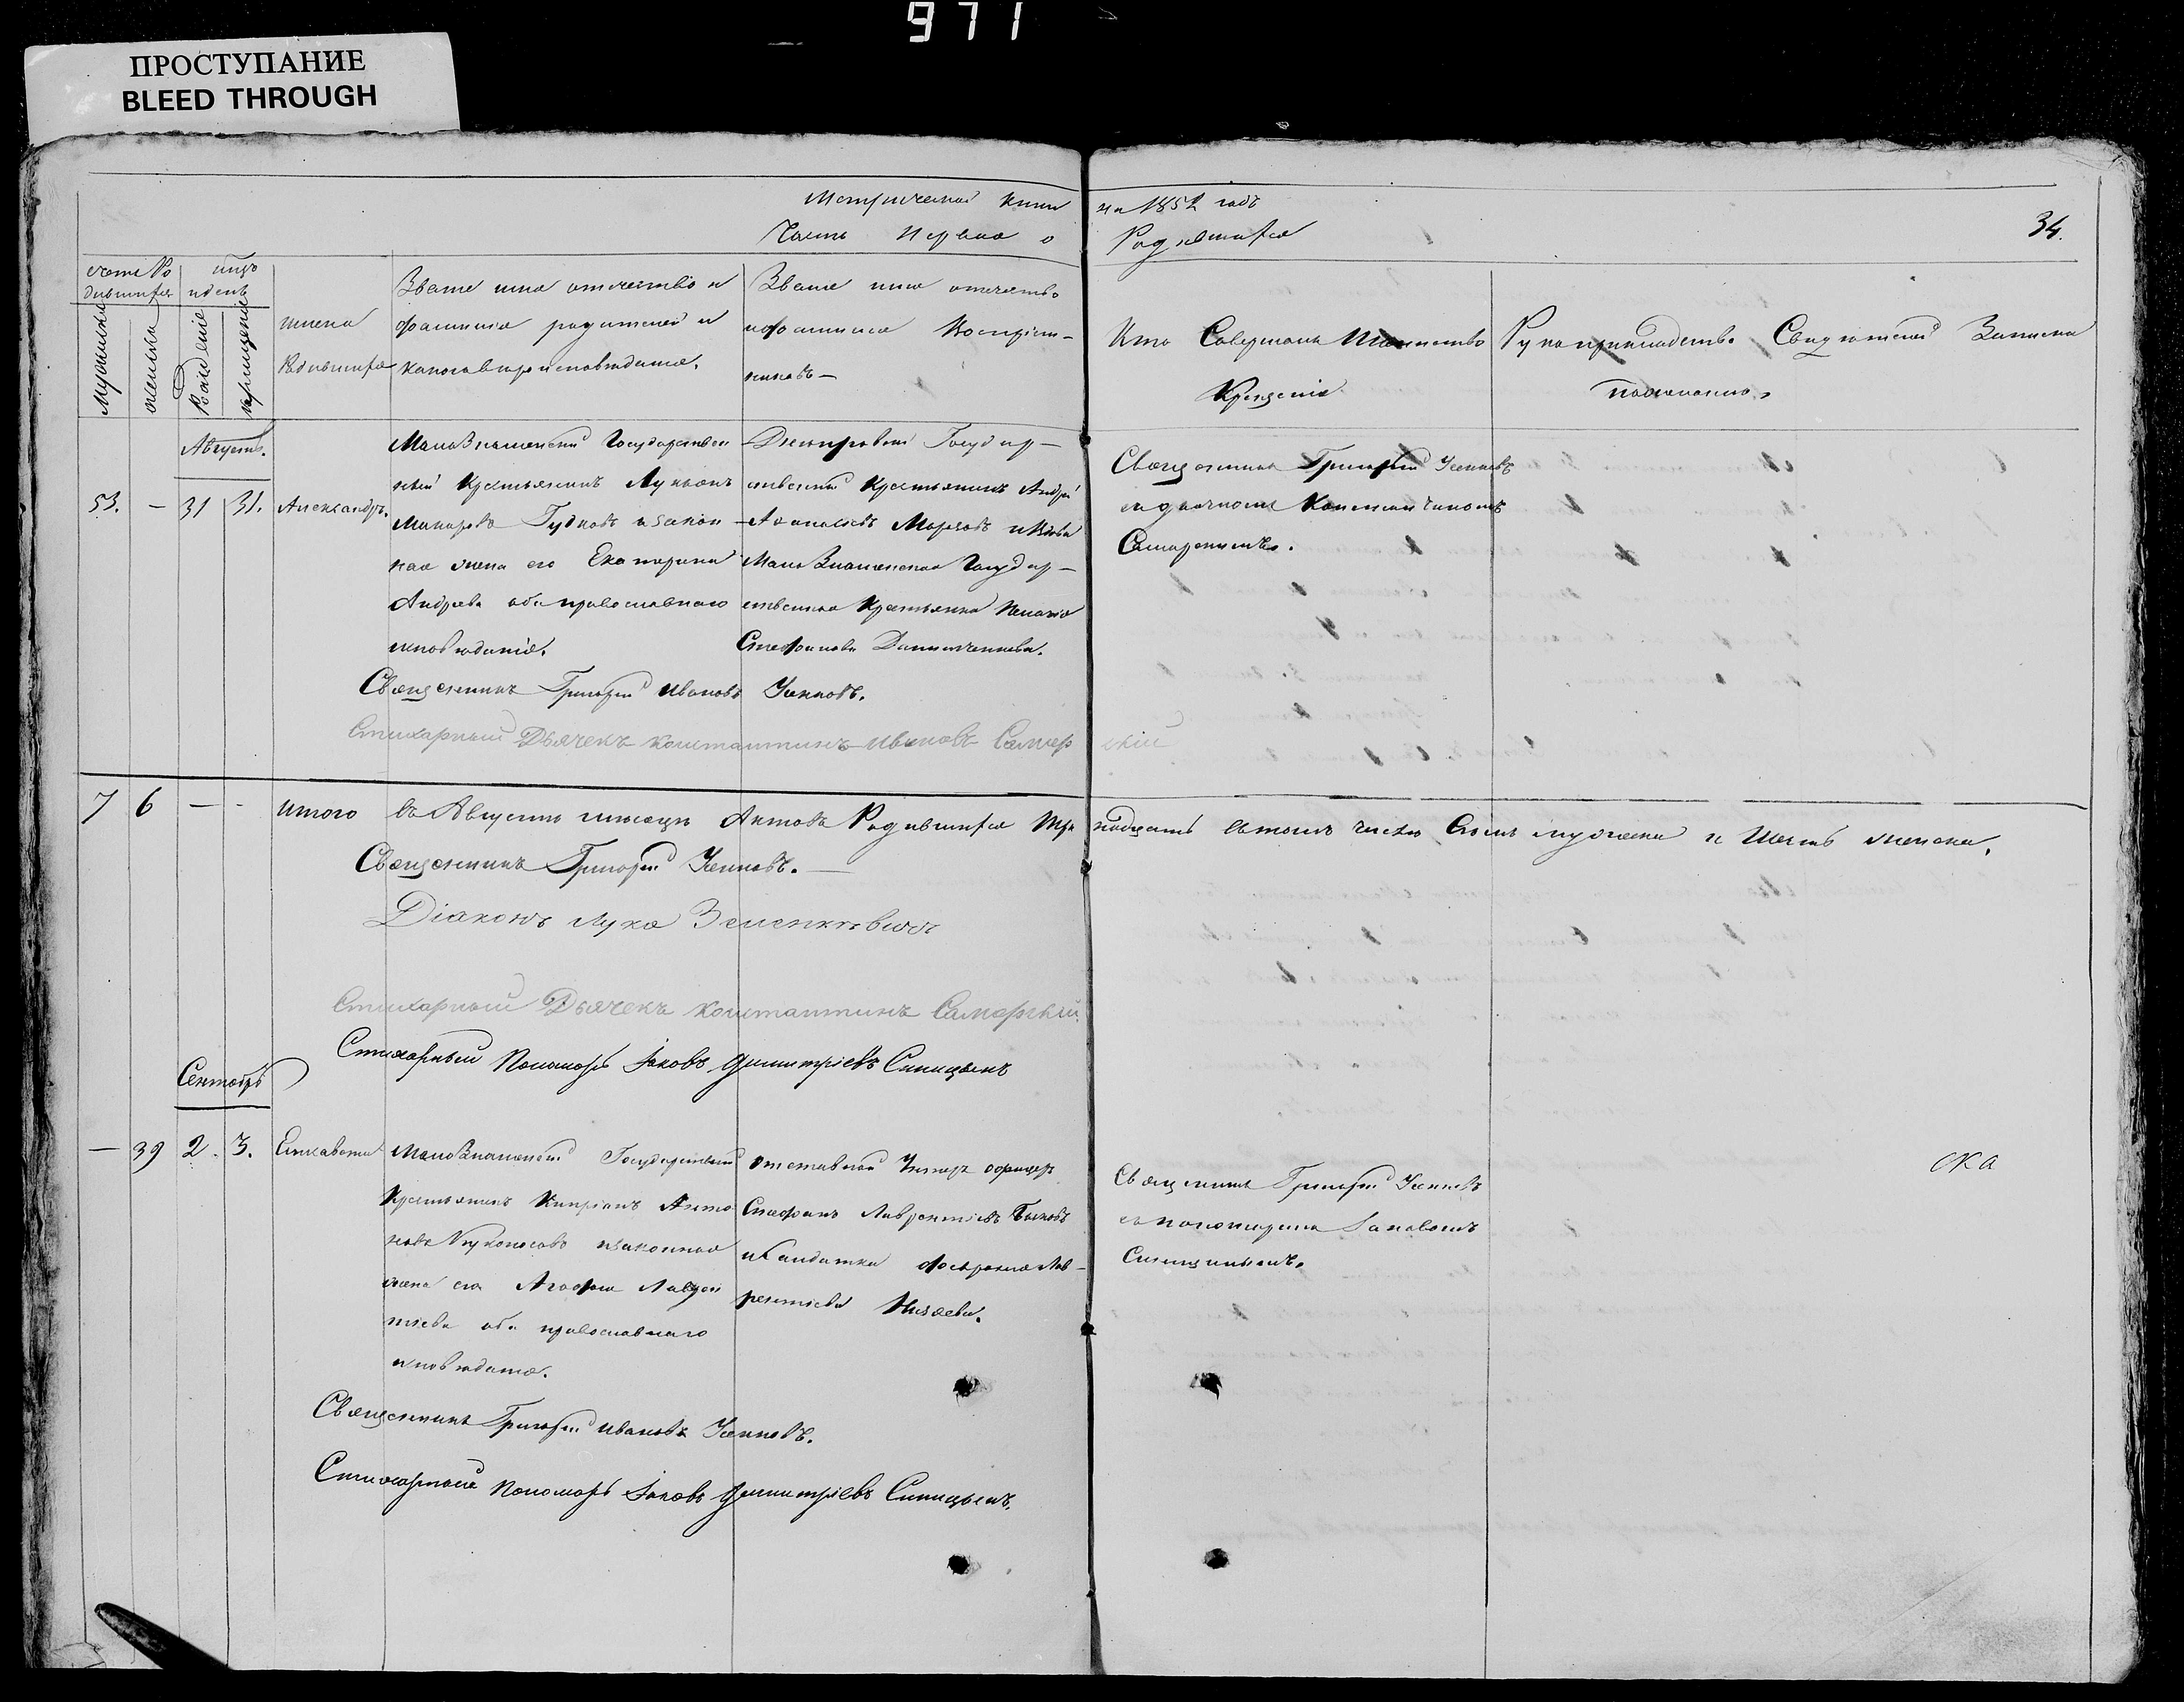 971
ПРОСТУПАНИЕ
BLEED THROUGH
Метрической книги на 1852 годъ
Часть Первая о Родившихся
34.
счетъ Ро
дившихся
мужеска
женска
рожденiе
крещенiе
имена
Родившихся
Званiе имя отчество и
фамилiя родителей и
какого вѣроисповѣданiя.
Званiе имя отчество
и фамилiя Воспрiем-
никовъ
Кто Совершалъ Таинство
Крещенiя
Рукоприкладство Свидѣтелей Записки
по желанiю,
Августъ.
53. - 31 31. Александръ.
МалоЗнаменскiй Государствен
ный Крестьянинъ Лукьянъ
Макаровъ Гудковъ и закон
ная жена его Екатерина
Андреева оба православнаго
исповѣданiя.
Днепровскiй Государ-
ственный Крестьянинъ Андрей
МалоЗнаменская Государ-
ственная Крестьянка Пелагiя
Стефанова
Священникъ Григорiй
съ дьячкомъ Константиномъ
Самарскимъ.
Священникъ Григорiй Ивановъ
Стихарный Дьячекъ Константинъ Ивановъ Самарскiй
7 6 - - Итого въ Августѣ мѣсяцѣ Актовъ Родившихся тринадцать въ томъ числѣ Семь мужеска и Шесть женска.
Священникъ Григорiй
Дiаконъ Лука
Стихарный Дьячекъ Константинъ Самарскiй
Стихарный Пономарь Iаковъ Димитрiевъ Синицынъ
Сентябрь
- 39 2. 3. Елисавета
МалоЗнаменскiй Государственный
Крестьянинъ Кипрiанъ Анто
новъ и законная
жена его Агафiя Лаврен
тiева оба православнаго
исповѣданiя.
Отставной Унтеръ офицеръ
Стефанъ Лаврентiевъ Быковъ
и Солдатка Лав-
рентiева
Священникъ Григорiй
съ пономаремъ Iаковомъ
Синицынымъ.
ска
Священникъ Григорiй Ивановъ
Стихарный Пономарь Iаковъ Димитрiевъ Синицынъ.